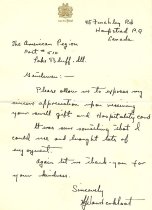 45 Finchley Rd
Hampstead P.Q
Canada
The American Peg on
Post # 510
Lake Bluff. Ill.
Gentlemen:—
Please allow us to express my
sincere appreciation for receiving
your swell gift and Hospitality card
It was sure something that I
could use and bought lots of
my squad.
Again let me thank-you for
your kindness.
Sincerely